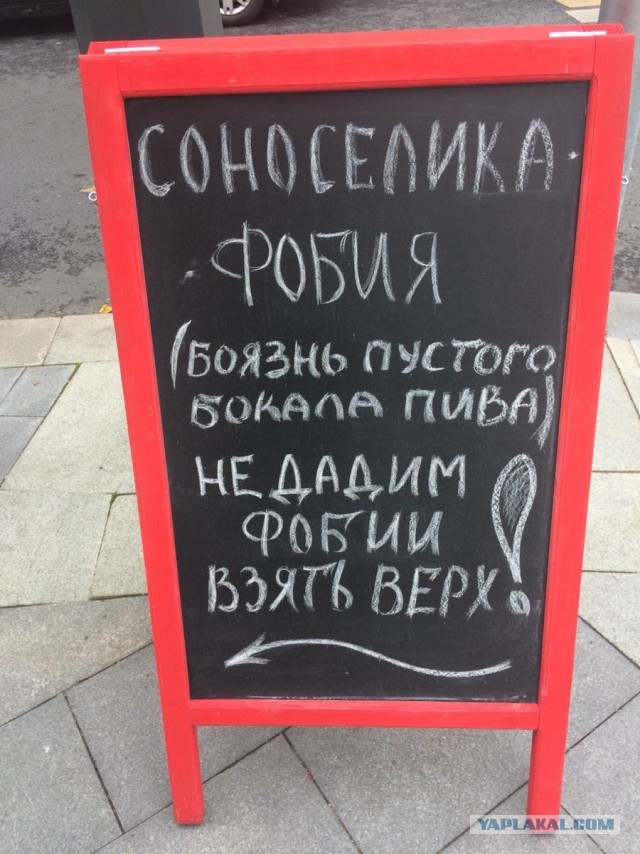 СОНОСЕЛИКА
ФОБИЯ
(БОЯЗНЬ ПУСТОГО
БОКАЛА ПИВА)
НЕ ДАДИМ
ФОБИИ
ВЗЯТЬ ВЕРХ!
YAPLAKAL.COM